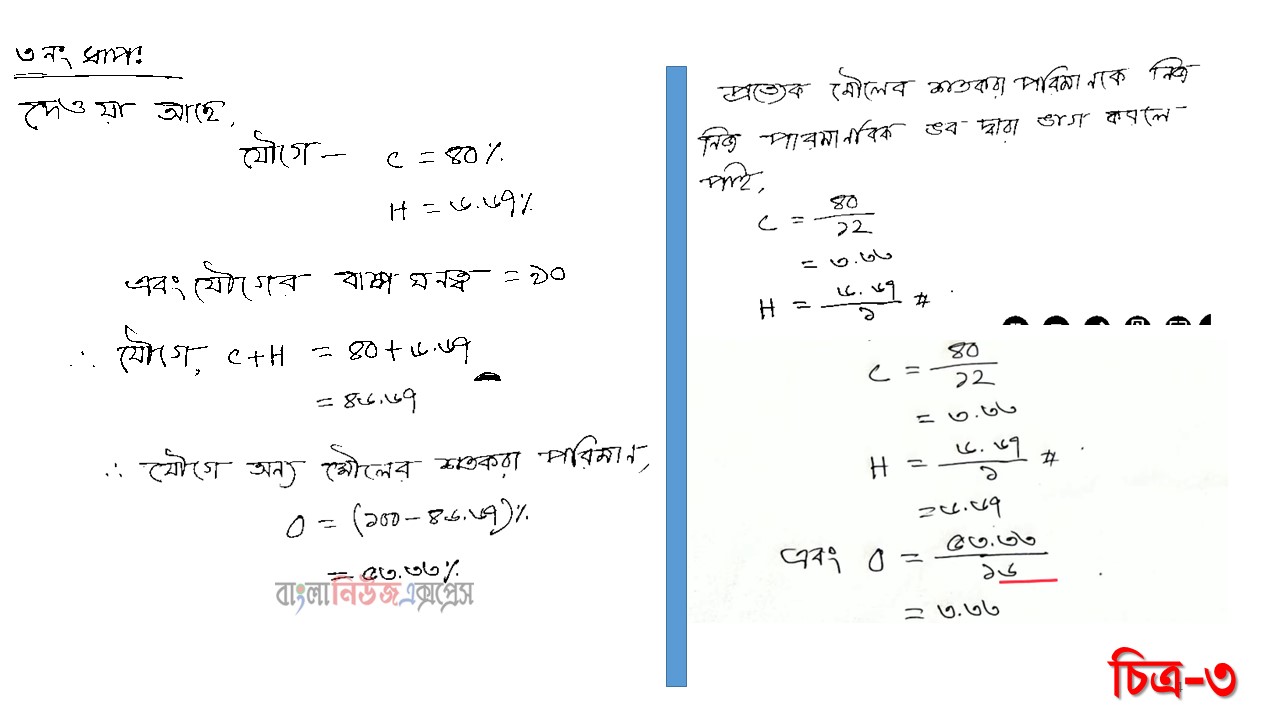 ৩ নং ধাপঃ
দেওয়া আছে,
যৌগে — C = ৪০%
H = ৬.৬৭%
এবং যৌগের বাষ্প ঘনত্ব = ৯০
∴ যৌগে, C+H = ৪০ + ৬.৬৭
= ৪৬.৬৭
∴ যৌগে অন্য মৌলের শতকরা পরিমান,
O = (১০০ – ৪৬.৬৭)%
= ৫৩.৩৩%
বাংলা নিউজ এক্সপ্রেস
প্রত্যেক মৌলের শতকরা পরিমানকে নিজ
নিজ পারমানবিক ভর দ্বারা ভাগ করলে
পাই,
C = ৪০/১২
= ৩.৩৩
H = ৬.৬৭/১ #
C = ৪০/১২
= ৩.৩৩
H = ৬.৬৭/১ #
= ৬.৬৭
এবং O = ৫৩.৩৩/১৬
= ৩.৩৩
চিত্র-৩